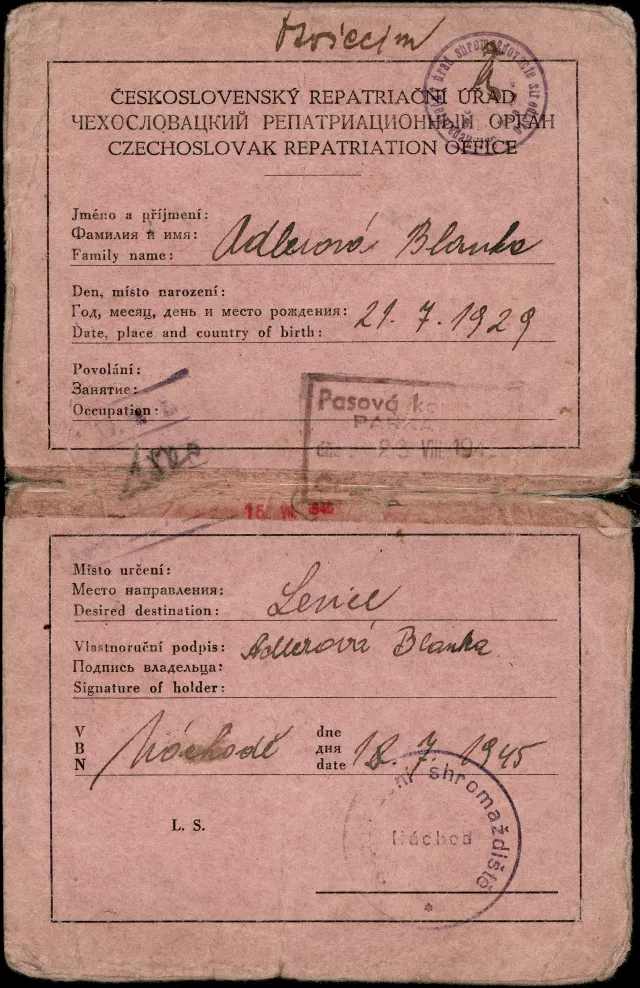 Osviecim
úrad shromaždovacie stredisko
ČESKOSLOVENSKÝ REPATRIAČNÍ ÚŘAD
ЧЕХОСЛОВАЦКИЙ РЕПАТРИАЦИОННЫЙ ОРГАН
CZECHOSLOVAK REPATRIATION OFFICE
Jméno a příjmení:
Фамилия и имя:
Family name: Adlerová Blanka
Den, místo narození:
Год, месяц, день и место рождения:
Date, place and country of birth: 21. 7. 1929
Povolání:
Занятие:
Occupation:
Pasová
23 VIII. 194
15 VII. 1945
Místo určení:
Место направления:
Desired destination: Levice
Vlastnoruční podpis: Adlerová Blanka
Подпись владельца:
Signature of holder:
V dne
В дня
N Náchodě date 18. 7. 1945
L. S.
shromaždiště
Náchod
*